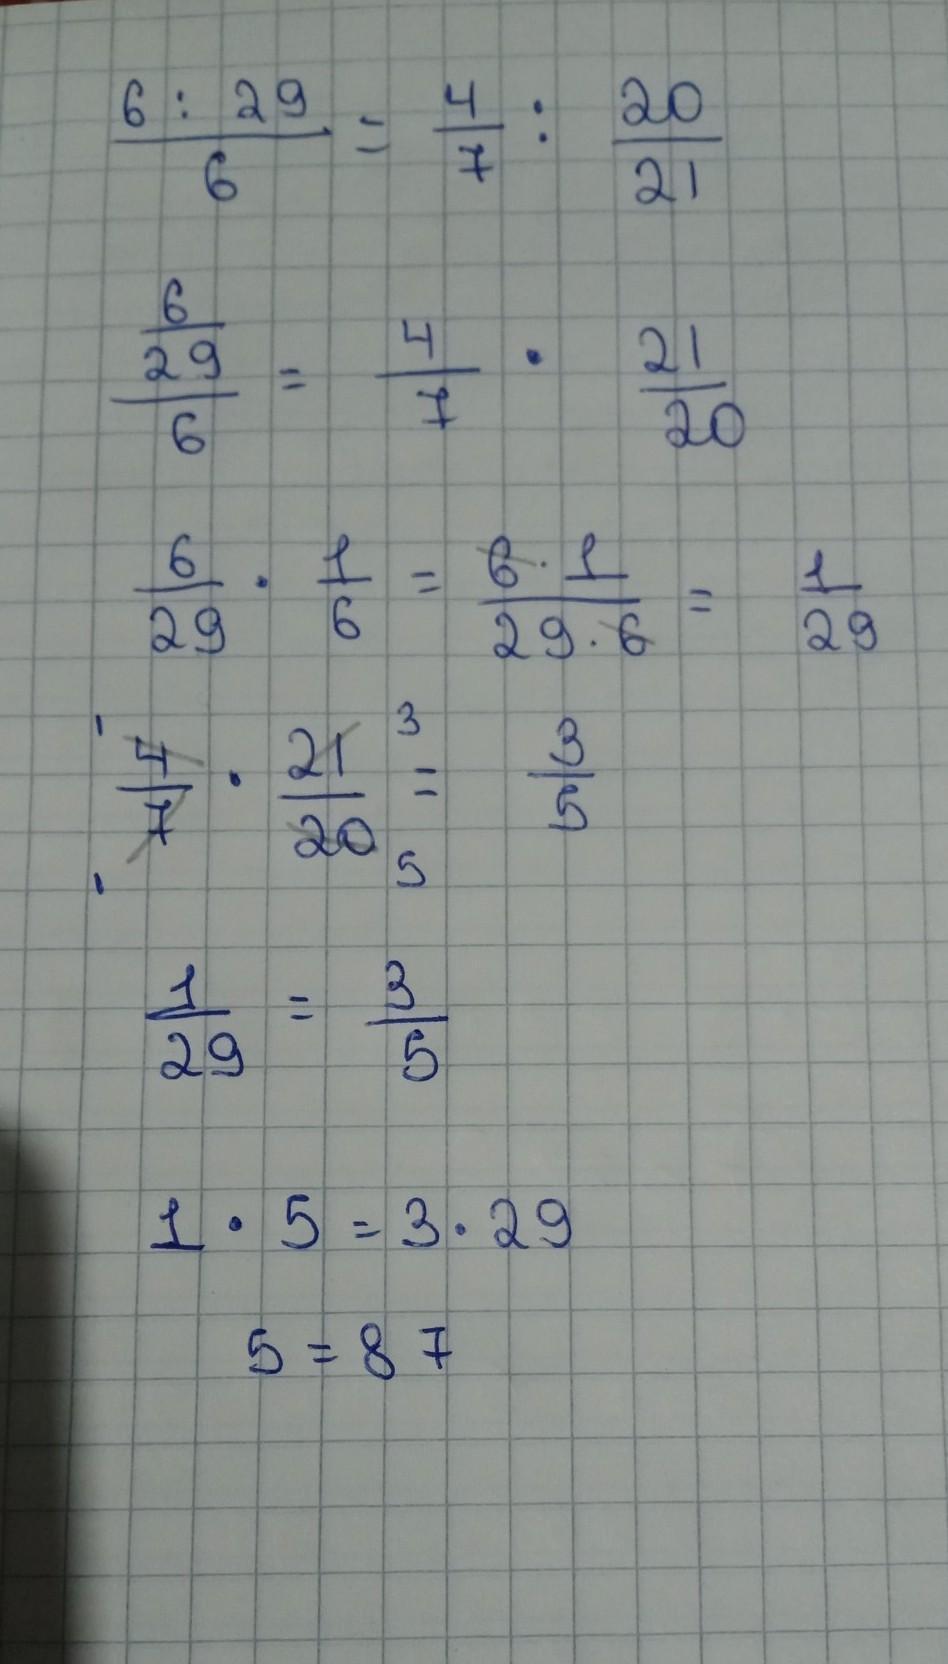 6 : 29 / 6 = 4/7 : 20/21
6/29 / 6 = 4/7 · 21/20
6/29 · 1/6 = 6 · 1 / 29 · 6 = 1/29
' 4/7 · 21/20 3 5 = 3/5
1/29 = 3/5
1 · 5 = 3 · 29
5 = 87